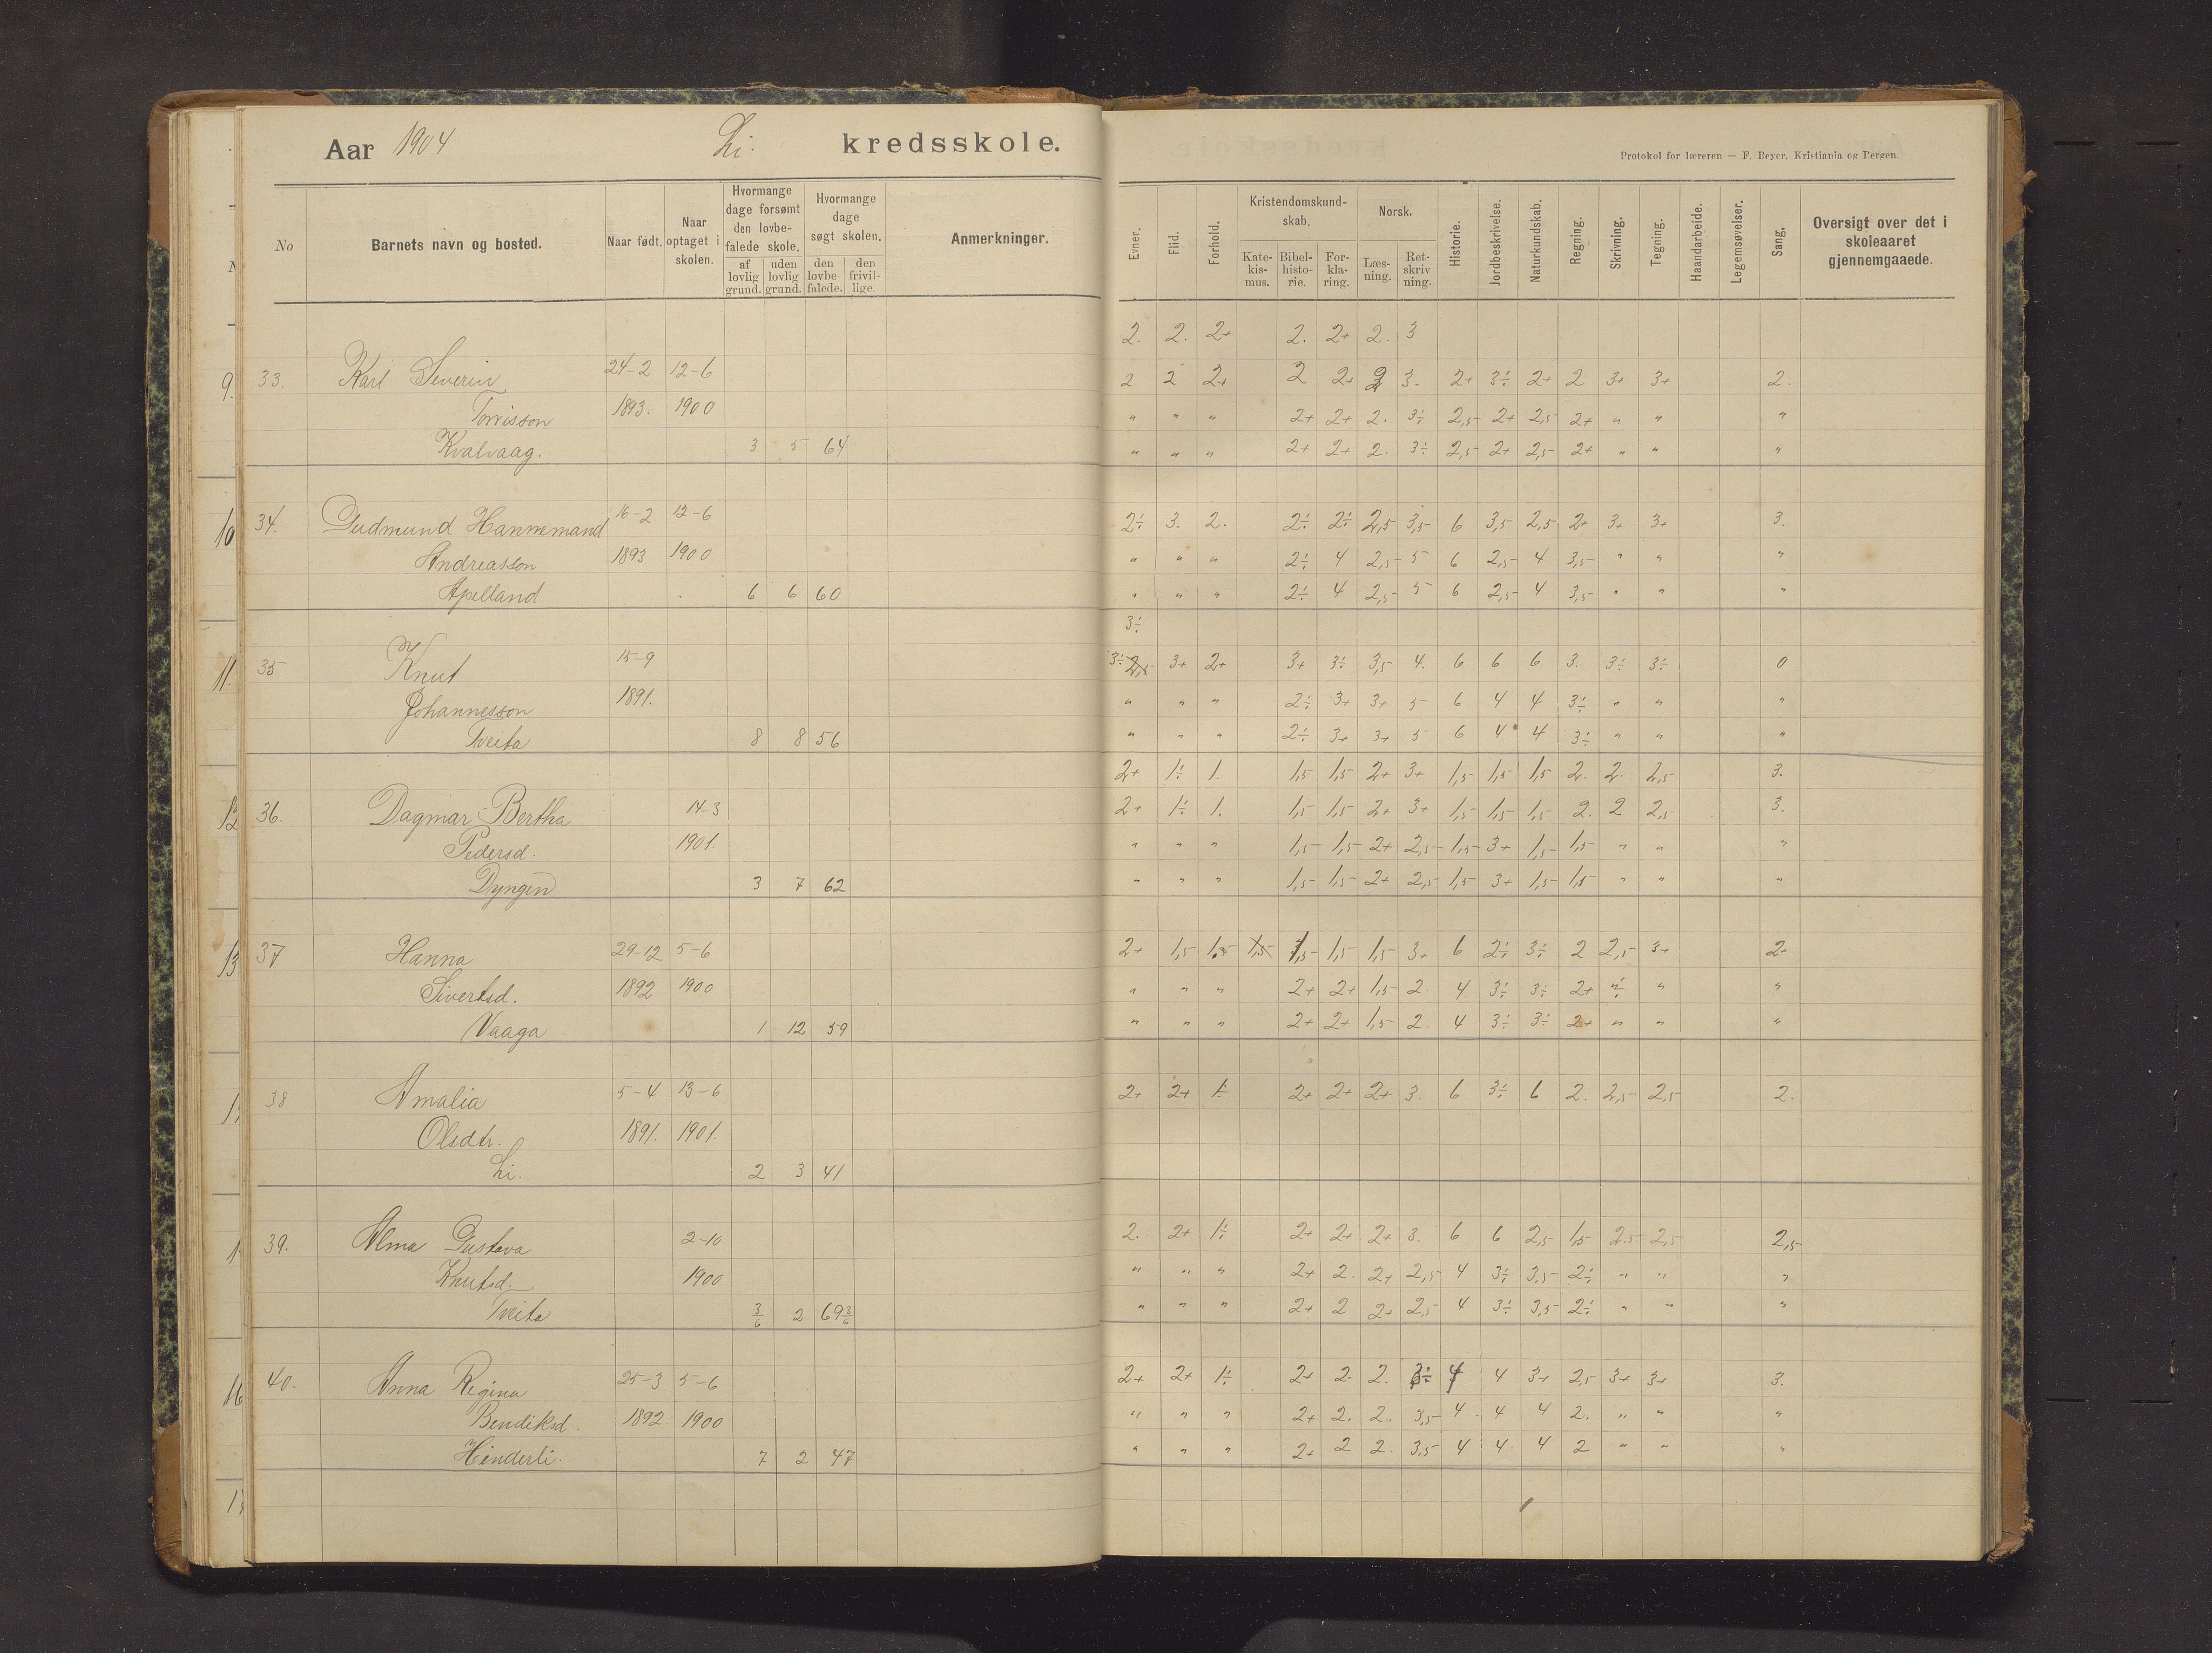 Aar 1904 Li. kredsskole.
Protokol for læreren — F. Beyer. Kristiania og Bergen.
No Barnets navn og bosted. Naar født. Naar optaget i skolen. Hvormange dage forsømt den lovbefalede skole. af lovlig grund. uden lovlig grund. Hvormange dage søgt skolen. den lovbefalede. den frivillige. Anmerkninger.
Evner. Flid. Forhold. Kristendomskundskab. Katekismus. Bibelhistorie. Forklaring. Norsk. Læsning. Retskrivning. Historie. Jordbeskrivelse. Naturkundskab. Regning. Skrivning. Tegning. Haandarbeide. Legemsøvelser. Sang. Oversigt over det i skoleaaret gjennemgaaede.
2. 2. 2+ 2. 2+ 2. 3
33. Karl Severin 24-2 12-6 2 2 2+ 2 2+ 2 3. 2+ 3÷ 2+ 2 3+ 3+ 2.
Torrisson 1893. 1900 " " " 2+ 2+ 2. 3÷ 2,5 2+ 2,5 2+ " " "
Kvalvaag. 3 5 64 " " " 2+ 2+ 2. 3÷ 2,5 2+ 2,5 2+ " " "
34. Gudmund Hannemand 16-2 12-6 2÷ 3. 2. 2÷ 2÷ 2,5 3,5 6 3,5 2,5 2+ 3+ 3+ 3.
Andreasson 1893 1900 " " " 2÷ 4 2,5 5 6 2,5 4 3,5 " " "
Apelland 6 6 60 " " " 2÷ 4 2,5 5 6 2,5 4 3,5 " " "
3÷
35 Knut 15-9 3÷ 2,5 3+ 2+ 3+ 3÷ 3,5 4. 6 6 6 3. 3÷ 3÷ 0
Johannesson 1891. " " " 2÷ 3+ 3+ 5 6 4 4 3÷ " " "
Tveita 8 8 56 " " " 2÷ 3+ 3+ 5 6 4 4 3÷ " " "
2+ 1÷ 1. 1,5 1,5 2+ 3+ 1,5 1,5 1,5 2. 2. 2,5 3.
36. Dagmar Bertha 14-3 2+ 1÷ 1. 1,5 1,5 2+ 3+ 1,5 1,5 1,5 2. 2 2,5 3.
Pedersd. 1901. " " " 1,5 1,5 2+ 2,5 1,5 3+ 1,5 1,5 " " "
Dyngen 3 7 62 " " " 1,5 1,5 2+ 2,5 1,5 3+ 1,5 1,5 " " "
37 Hanna 29-12 5-6 2+ 1,5 1,5 1,5 1,5 1,5 1,5 3+ 6 2÷ 3÷ 2 2,5 3+ 2
Sivertsd. 1892 1900 " " " 2+ 2+ 1,5 2. 4 3÷ 3÷ 2+ " " "
Vaaga 1 12 59 " " " 2+ 2+ 1,5 2. 4 3÷ 3÷ 2+ " " "
38 Amalia 5-4 13-6 2+ 2+ 1÷ 2+ 2+ 2+ 3. 6 3÷ 6 2. 2,5 2,5 2.
Olsdtr. 1891. 1901.
Li. 2 3 41
39. Alma Gustava 2-10 2. 2+ 1÷ 2+ 2+ 2+ 3. 6 6 2,5 1,5 2.5 2,5 2,5
Knutsd. 1900 " " " 2+ 2. 2+ 2,5 4 3÷ 3,5 2÷ " " "
Tveita 3/6 2 69 3/6 " " " 2+ 2 2+ 2,5 4 3÷ 3,5 2÷ " " "
40. Anna Regina 25-3 5-6 2+ 2+ 1÷ 2+ 2. 2. 3÷ 4 4 3+ 2,5 3+ 3+ 3.
Bendiksd. 1892 1900 " " " 2+ 2. 2. 3,5 4. 4 4 2. " " "
Hinderli. 7 2 47 " " " 2+ 2 2. 3,5 4 4 4 2 " " "